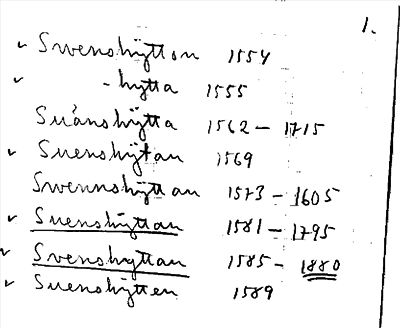 1.
✓ Swenshÿtton 1554
✓ - hytta 1555
Suånshÿtta 1562 - 1715
✓ Suenshÿtan 1569
Swennshÿttan 1573 - 1605
✓ Suenshÿttan 1581 - 1795
✓ Svenshyttan 1585 - 1880
✓ Suenshÿtten 1589